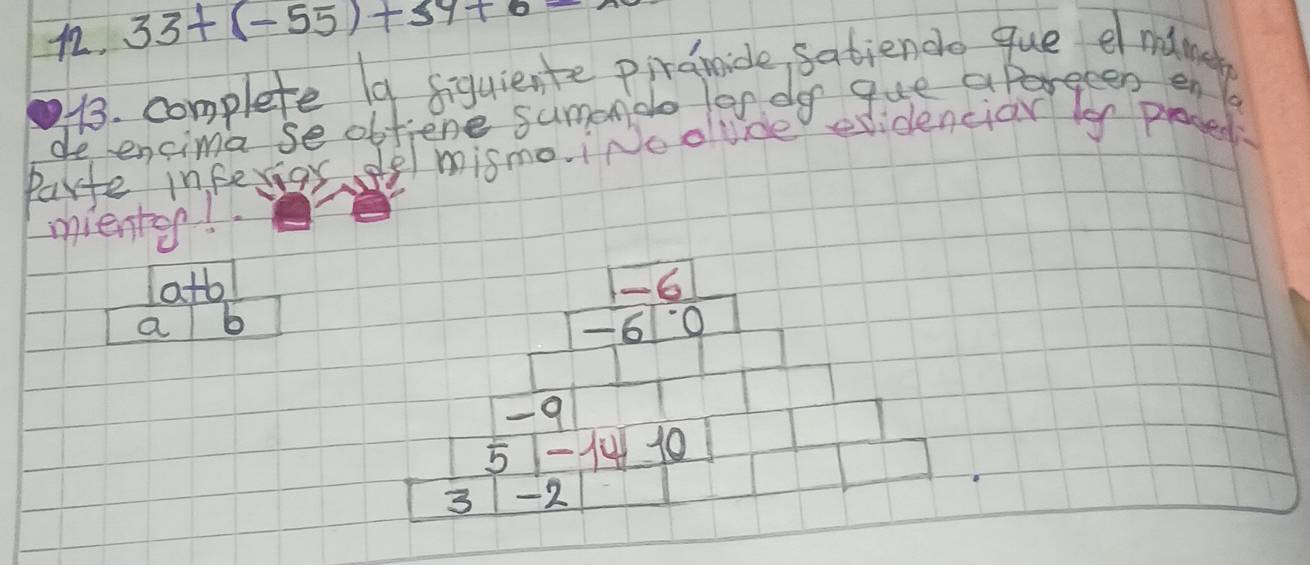 12. 33+(-55)+34+6
13. complete la siguiente pirámide, sabiendo que el número
de encima se obtiene sumando los dos que aparecen en la
Parte inferior del mismo. ¡No olvide evidenciar los procedi-
mientos!.
a+b
a b
-6
-6 0
-9
5 -14 10
3 -2